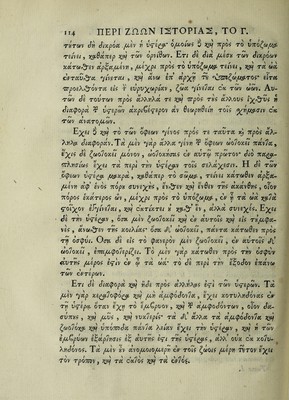 114 ΠΕΡΙ ΖΩΩΝ ΙΣΤΟΡΙΑΣ, ΤΟ Γ.
τύτων δὴ δικρόα μὲν ἡ ὑστέρα ὁμοίως καὶ πρὸς τὸ ὑπόζωμα
τείνει, καθάπερ καὶ τῶν ὀρνίθων. Ετι δὲ διὰ μέσυ τῶν δικρόων
κάτωθεν ἀρξαμένη, μέχρι πρὸς τὸ ὑπόζωμα τείνει, καὶ τὰ ὠὰ
ἐνταῦθα γίνεται, καὶ ἄνω ἐπ' ἀρχῇ τῦ ὑποζώματος· εἶτα
προελθόντα εἰς τὴν εὐρυχωρίαν, ζῶα γίνεται ἐκ τῶν ὠῶν. Αὐ-
τῶν δὲ τούτων πρὸς ἄλληλά τε καὶ πρὸς τὺς ἄλλους ἰχθῦς ἡ
διαφορὰ τῶν ὑστερῶν ἀκριβέστερον ἂν θεωρηθείη τοῖς σχήμασιν ἐκ
τῶν ἀνατομῶν.
Εχει δὲ καὶ τὸ τῶν ὄφεων γένος πρός τε ταῦτα καὶ πρὸς ἄλ-
ληλα διαφοράν. Τὰ μὲν γὰρ ἄλλα γένη τῶν ὄφεων ὠοτοκεῖ πάντα,
ἔχις δὲ ζωοτοκεῖ μόνον, ὠοτοκήσας ἐν αὑτῷ πρῶτον· διὸ παρα-
πλησίως ἔχει τὰ περὶ τὴν ὑστέραν τοῖς σελάχεσιν. Ἡ δὲ τῶν
ὄφεων ὑστέρα μακρὰ, καθάπερ τὸ σῶμα, τείνει κάτωθεν ἀρξα-
μένη ἀφ' ἑνὸς πόρυ συνεχὴς, ἔνθεν καὶ ἔνθεν τῆς ἀκάνθης, οἷον
πόρος ἑκάτερος ὢν, μέχρι πρὸς τὸ ὑπόζωμα, ἐν ᾧ τὰ ὠὰ κατὰ
στοῖχον ἐγγίνεται, καὶ ἐκτίκτει οὐ καθ' ἓν, ἀλλὰ συνεχές. Εχει
δὲ τὴν ὑστέραν, ὅσα μὲν ζωοτοκεῖ καὶ ἐν αὑτοῖς καὶ εἰς τύμφα-
νὲς, ἄνωθεν τῆς κοιλίας· ὅσα δ' ὠοτοκεῖ, πάντα κάτωθεν πρὸς
τῇ ὀσφύϊ. Οσα δὲ εἰς τὸ φανερὸν μὲν ζωοτοκεῖ, ἐν αὑτοῖς δ'
ὠοτοκεῖ, ἐπαμφοτερίζει. Τὸ μὲν γὰρ κάτωθεν πρὸς τὴν ὀσφὺν
αὐτῆς μέρος ἐστὶν ἐν ᾧ τὰ ὠά· τὸ δὲ περὶ τὴν ἔξοδον ἐπάνω
τῶν ἐντέρων.
Ετι δὲ διαφορὰ καὶ ἥδε πρὸς ἄλληλας ἐστὶ τῶν ὑστερῶν. Τὰ
μὲν γὰρ κερατοφόρα καὶ μὴ ἀμφόδοντα, ἔχει κοτυληδόνας ἐν
τῇ ὑστέρᾳ ὅταν ἔχῃ τὸ ἔμβρυον, καὶ τῶν ἀμφοδόντων, οἷον δα-
σύπυς, καὶ μῦς, καὶ νυκτερίς· τὰ δ' ἄλλα τὰ ἀμφόδοντα καὶ
ζωοτόκα καὶ ὑπόποδα πάντα λείαν ἔχει τὴν ὑστέραν, καὶ ἡ τῶν
ἐμβρύων ἐξάρτησις ἐξ αὐτῆς ἐστι τῆς ὑστέρας, ἀλλ' οὐκ ἐκ κοτυ-
ληδόνος. Τὰ μὲν ἓν ἀνομοιομερῆ ἐν τοῖς ζώοις μέρη τῦτον ἔχει
τὸν τρόπον, καὶ τὰ ἐκτὸς καὶ τὰ ἐντός.